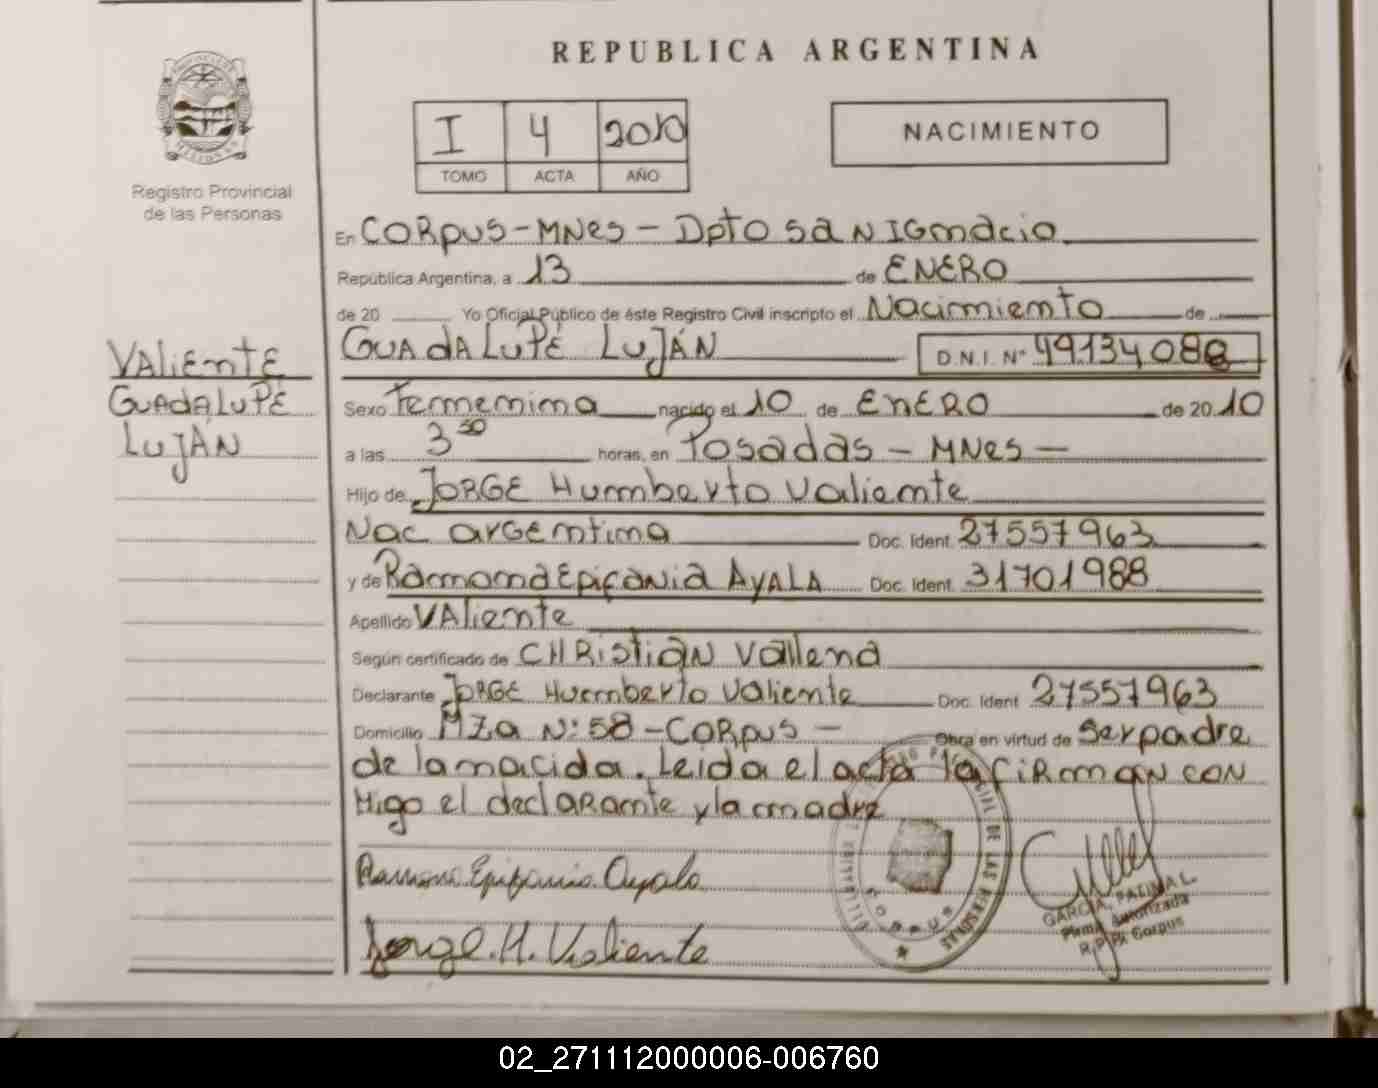 REPUBLICA ARGENTINA
I 4 2010
TOMO ACTA AÑO
NACIMIENTO
Registro Provincial
de las Personas
En CORPUS - MNes - Dpto SAN IGNACIO
República Argentina, a 13 de ENERO
de 20 Yo Oficial Público de éste Registro Civil inscripto el Nacimiento de
GUADALUPE LUJÁN D.N.I. Nº
VALIENTE
GUADALUPE
LUJÁN
Sexo Femenina nacido el 10 de ENERO de 20 10
a las 3 30 horas, en Posadas - MNes -
Hijo de JORGE Humberto Valiente
Nac argentina Doc. Ident. 27557963
y de Ramona Epifania AYALA Doc. Ident. 31701988
Apellido VALiente
Según certificado de CHRistiAN Vallena
Declarante JORGE Humberto Valiente Doc. Ident 27557963
Domicilio MZa Nº 58 - CORPUS - Obra en virtud de Ser padre
de la nacida. Leida el acta la FIRMAN CON
Migo el declarante y la madre
Ramona Epifania Ayala
Jorge. H. Valiente
CORPUS
GARCIA,
Firma Autorizada
Corpus
02_271112000006-006760